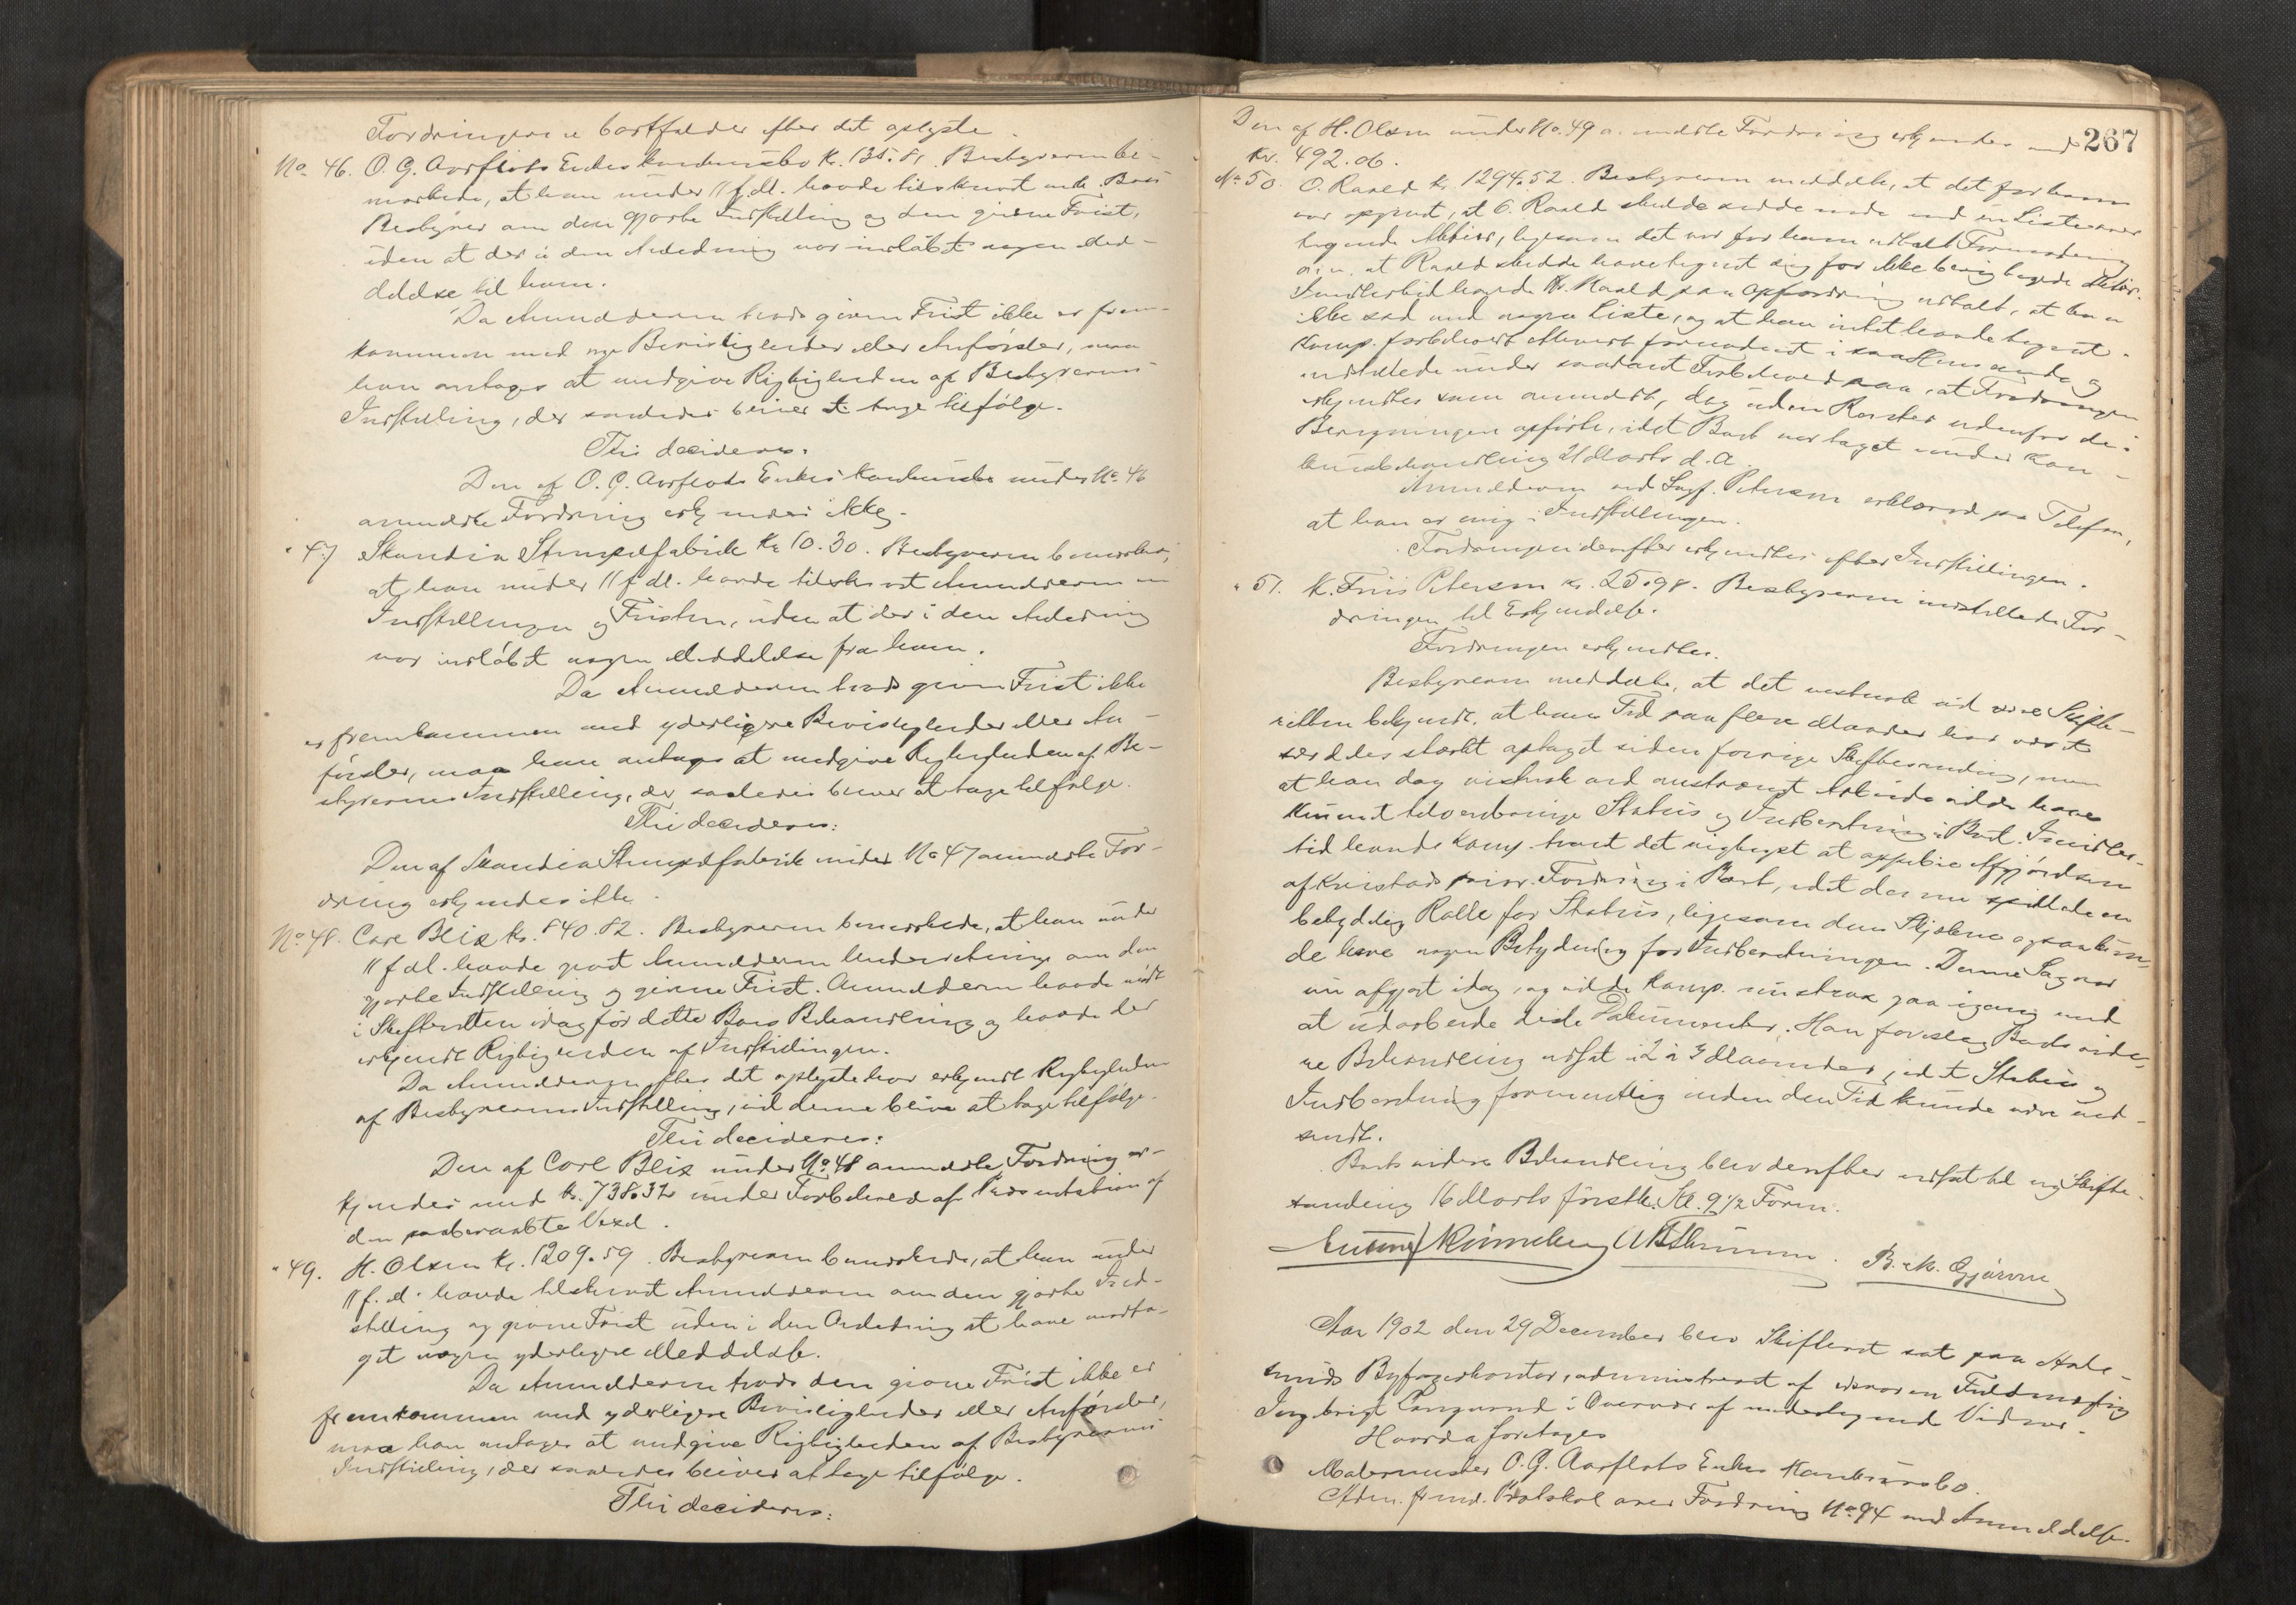 Fordringerne bortfalder efter det oplyste.
No 46. O. G. Aarflots Enkes Konkursbo Kr. 135.81. Bestyreren be-
mærkede, at han under 11 f. M. havde tilskrevet anm. Bos
Bestyrer om den gjorte Indstilling og den givne Frist,
uden at der i den Anledning var indløbet nogen Med-
delelse til ham.
Da Anmelderen trods given Frist ikke er frem-
kommen med nye Bevisligheder eller Anførsler, maa
han antages at medgive Rigtigheden af Bestyrerens
Indstilling, der saaledes bliver at tage tilfølge.
Thi decideres:
Den af O. G. Aarflots Enkes Konkursbo under No 46
anmeldte Fordring erkjendes ikke.
" 47 Skandia Stempelfabrik Kr 10.30. Bestyreren bemærkede,
at han under 11 f. M. havde tilskrevet Anmelderen om
Indstillingen og Fristen, uden at der i den Anledning
var indløbet nogen Meddelelse fra ham.
Da Anmelderen trods given Frist ikke
er fremkommen med yderligere Bevisligheder eller An-
førsler, maa han antages at medgive Rigtigheden af Be-
styrerens Indstilling, der saaledes bliver at tage tilfølge.
Thi decideres:
Den af Skandia Stempelfabrik under No 47 anmeldte For-
dring erkjendes ikke.
No 48. Carl Blix Kr. 840.82. Bestyreren bemærkede, at han under
11 f. M. havde givet Anmelderen Underretning om den
gjorte Indstilling og givne Frist. Anmelderen havde mødt
i Skifteretten idag før dette Bos Behandling og havde der
erkjendt Rigtigheden af Indstillingen.
Da Anmelderen efter det oplyste har erkjendt Rigtigheden
af Bestyrerens Indstilling, vil denne blive at tage tilfølge.
Thi decideres:
Den af Carl Blix under No 48 anmeldte Fordring er-
kjendes med Kr. 738.32 under Forbehold af Præsentation af
den paaberaabte Vexel.
" 49. H. Olsen Kr. 1209.59. Bestyreren bemærkede, at han under
11 f. M. havde tilskrevet Anmelderen om den gjorte Ind-
stilling og givne Frist uden i den Anledning at have modta-
get nogen yderligere Meddelelse.
Da Anmelderen trods den givne Frist ikke er
fremkommen med yderligere Bevisligheder eller Anførsler,
maa han antages at medgive Rigtigheden af Bestyrerens
Indstilling, der saaledes bliver at tage tilfølge.
Thi decideres:
267
Den af H. Olsen under No. 49 anmeldte Fordring erkjendes med
Kr. 492.06.
No 50. O. Raald Kr. 1294.52. Bestyreren meddelte, at det for ham
var opgivet, at O. Raald skulde sidde inde med en Liste over
tegnede Aktier, ligesom det var for ham udtalt Formodning
om, at Raald skulde have tegnet sig for ikke betalte Aktier.
Imidlertid havde Hr. Raald paa Opfordring udtalt, at han
ikke sad med nogen Liste, og at han intet havde tegnet.
Komp. forbeholdt alligevel fornødent i saa Henseende og
indstillede under saadant Forbehold paa, at Fordringen
erkjendtes som anmeldt, dog uden Renter udenfor de i
Beregningen opførte, idet Boet var taget under Kon-
kursbehandling 21 Marts d. A.
Anmelderen ved Sagf. Petersen erklæred pr Telefon,
at han er enig i Indstillingen.
Fordringen derefter erkjendtes efter Indstillingen.
" 51. K. Friis Petersen Kr. 25.98. Bestyreren indstillede For-
dringen til Erkjendelse.
Fordringen erkjendtes.
Bestyreren meddelte, at det nok vil være Skifte-
retten bekjendt, at hans Tid paa flere Maader har været
særdeles stærkt optaget siden forrige Skiftesamling, men
at han dog ved anstrengt Arbeide vilde have
kunnet tilveiebringe Status og Indberetning i Boet. Imidler-
tid havde Komp. troet det rigtigst at oppebie Afgjørelsen
af Kvistads prior. Fordring i Boet, idet den spillede en
betydelig Rolle for Status, ligesom dens Skjæbne ogsaa kun-
de have nogen Betydning for Indberetningen. Denne Sag var
nu afgjort idag, og vilde Komp. nu strax gaa igang med
at udarbeide disse Dokumenter. Han foreslog Boets vide-
re Behandling udsat i 2 à 3 Maaneder, idet Status og
Indberetning formentlig inden den Tid kunde være ind-
sendt.
Boets videre Behandling blev derefter udsat til ny Skifte-
samling 16 Marts førstk. Kl. 9½ Form.
B. M. Gjørven
Aar 1902 den 29 December blev Skifteret sat paa Aale-
sunds Byfogedkontor, administreret af edsvoren Fuldmægtig
Ingebrigt Langeland i Overvær af undertegnede Vidner.
Hvorda foretoges
Malermester O. G. Aarflots Enkes Konkursbo.
Adm. freml. Protokol over Fordring No 94 med Anmeldelse.